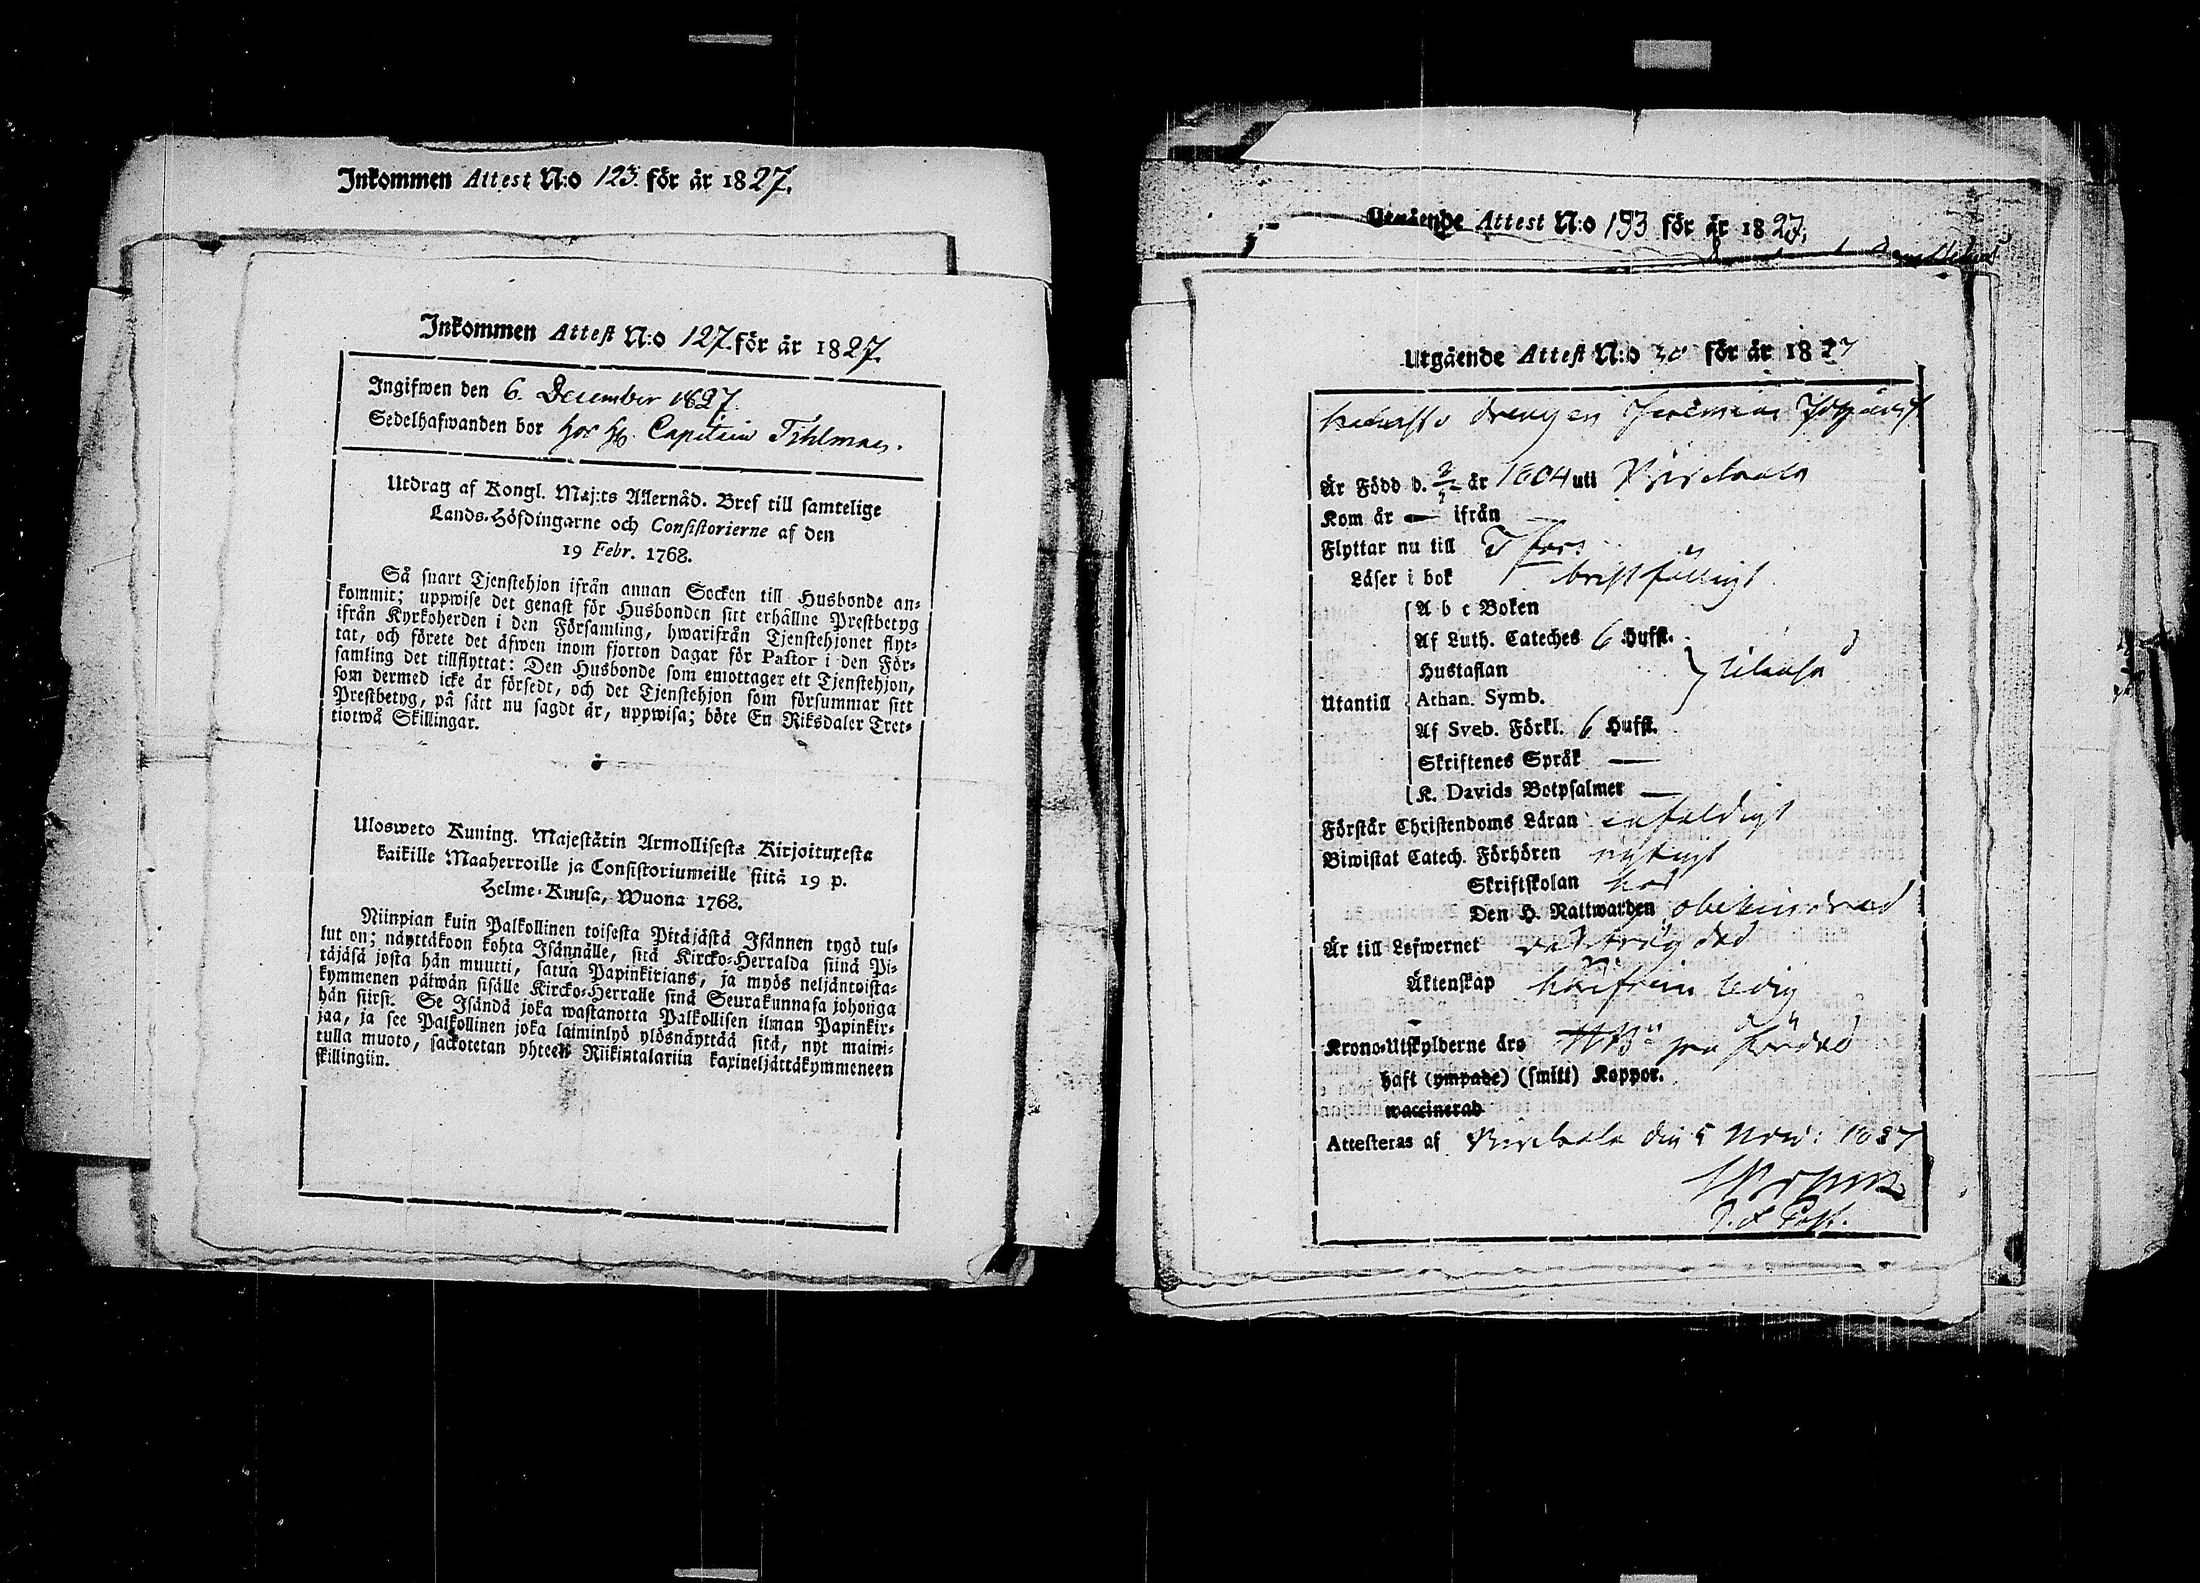 Inkommen Attest N:o 123. för år 1827.
Inkommen Attest N:o 127. för år 1827.
Ingifwen den 6. December 1827.
Sedelhafwanden bor hos Hr. Capitain Tihlman.
Utdrag af Kongl. Maj:ts Allernåd. Bref till samtelige
Lands-Höfdingarne och Consistorierne af den
19 Febr. 1768.
Så snart Tjenstehjon ifrån annan Socken till Husbonde an-
kommit; uppwise det genast för Husbonden sitt erhållne Prestbetyg
ifrån Kyrkoherden i den Församling, hwarifrån Tjenstehjonet flyt-
tat, och förete det äfwen inom fjorton dagar för Pastor i den För-
samling det tillflyttat: Den Husbonde som emottager ett Tjenstehjon,
som dermed icke är försedt, och det Tjenstehjon som försummar sitt
Prestbetyg, på sätt nu sagdt är, uppwisa; böte En Riksdaler Tret-
tiotwå Skillingar.
Ulosweto Kuning. Majestätin Armollisesta Kirjoituxesta
kaikille Maaherroille ja Consistoriumeille siitä 19 p.
Helme-Kuusa, Wuona 1768.
Niinpian kuin Palkollinen toisesta Pitäjästä Isännen tygö tul-
lut on; näyttäkoon kohta Isännälle, sitä Kircko-Herralda siinä Pi-
täjäsä josta hän muutti, satua Papinkirjans, ja myös neljäntoista-
kymmenen päiwän sisälle Kircko-Herralle sinä Seurakunnasa johonga
hän siirsi. Se Isändä joka wastanotta Palkollisen ilman Papinkir-
jaa, ja see Palkollinen joka laiminlyö ylösnäyttää sitä, nyt maini-
tulla muoto, sackotetan yhteen Riikintalariin kaxineljättäkymmeneen
skillingiin.
Utgående Attest N:o 193 för år 1827.
Utgående Attest N:o 30 för år 1827
drengen Jeremias
Är Född d. år 1804 uti Birckala
Kom år — ifrån
Flyttar nu till T fors
Läser i bok bristfälligt
A b c Boken
Af Luth. Cateches 6 Hufst.
Hustaflan
Utantill Athan. Symb.
Af Sveb. Förkl. 6 Hufst.
Skriftenes Språk —
K. Davids Botpsalmer —
Förstår Christendoms Läran enfaldigt
Biwistat Catech. Förhören
Skriftskolan
Den H. Nattwarden obehindrad
Är till Lefwernet
Äktenskap ledig
Krono-Utskylderne äro
haft (ympade) (smitt) Koppor.
waccinerad
Attesteras af Birckala den 5 Nov: 1827